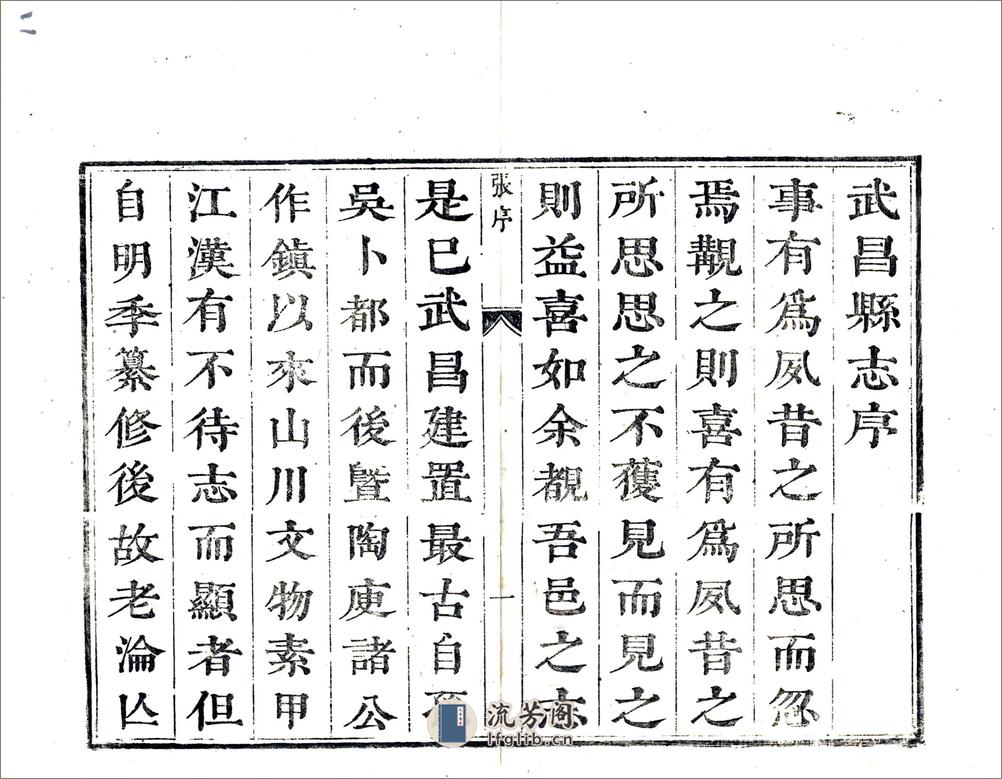 武昌縣志序
事有爲夙昔之所思而忽
焉觀之則喜有爲夙昔之
所思思之不獲見而見之
則益喜如余覩吾邑之志
張序
一
是已武昌建置最古自
吳卜都而後曁陶庾諸公
作鎭以來山川文物素甲
江漢有不待志而顯者但
自明季纂修後故老淪亾
流芳阁
lfglib.cn